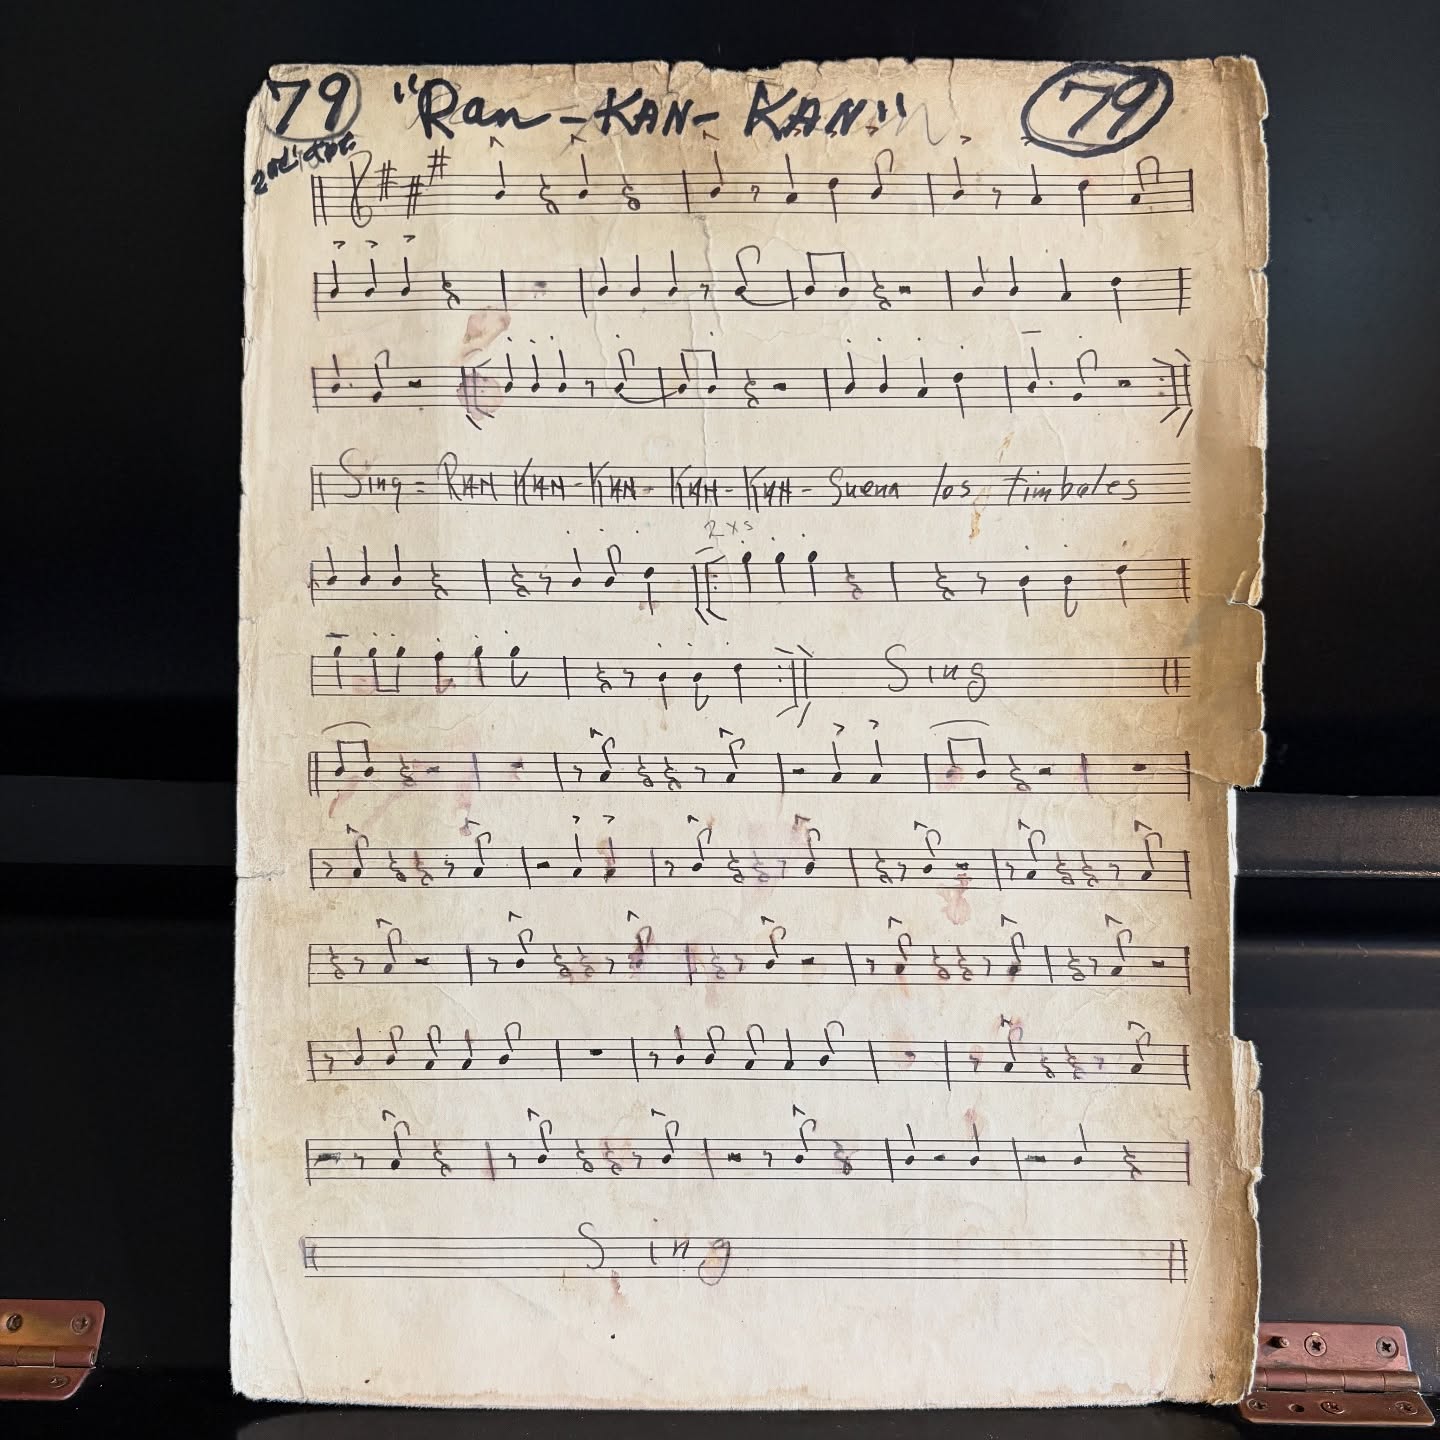 79 "Ran-KAN-KAN" 79
Sing = RAN KAN-KAN- KAN-KAN- Suena los timbales
2xs
Sing
Sing